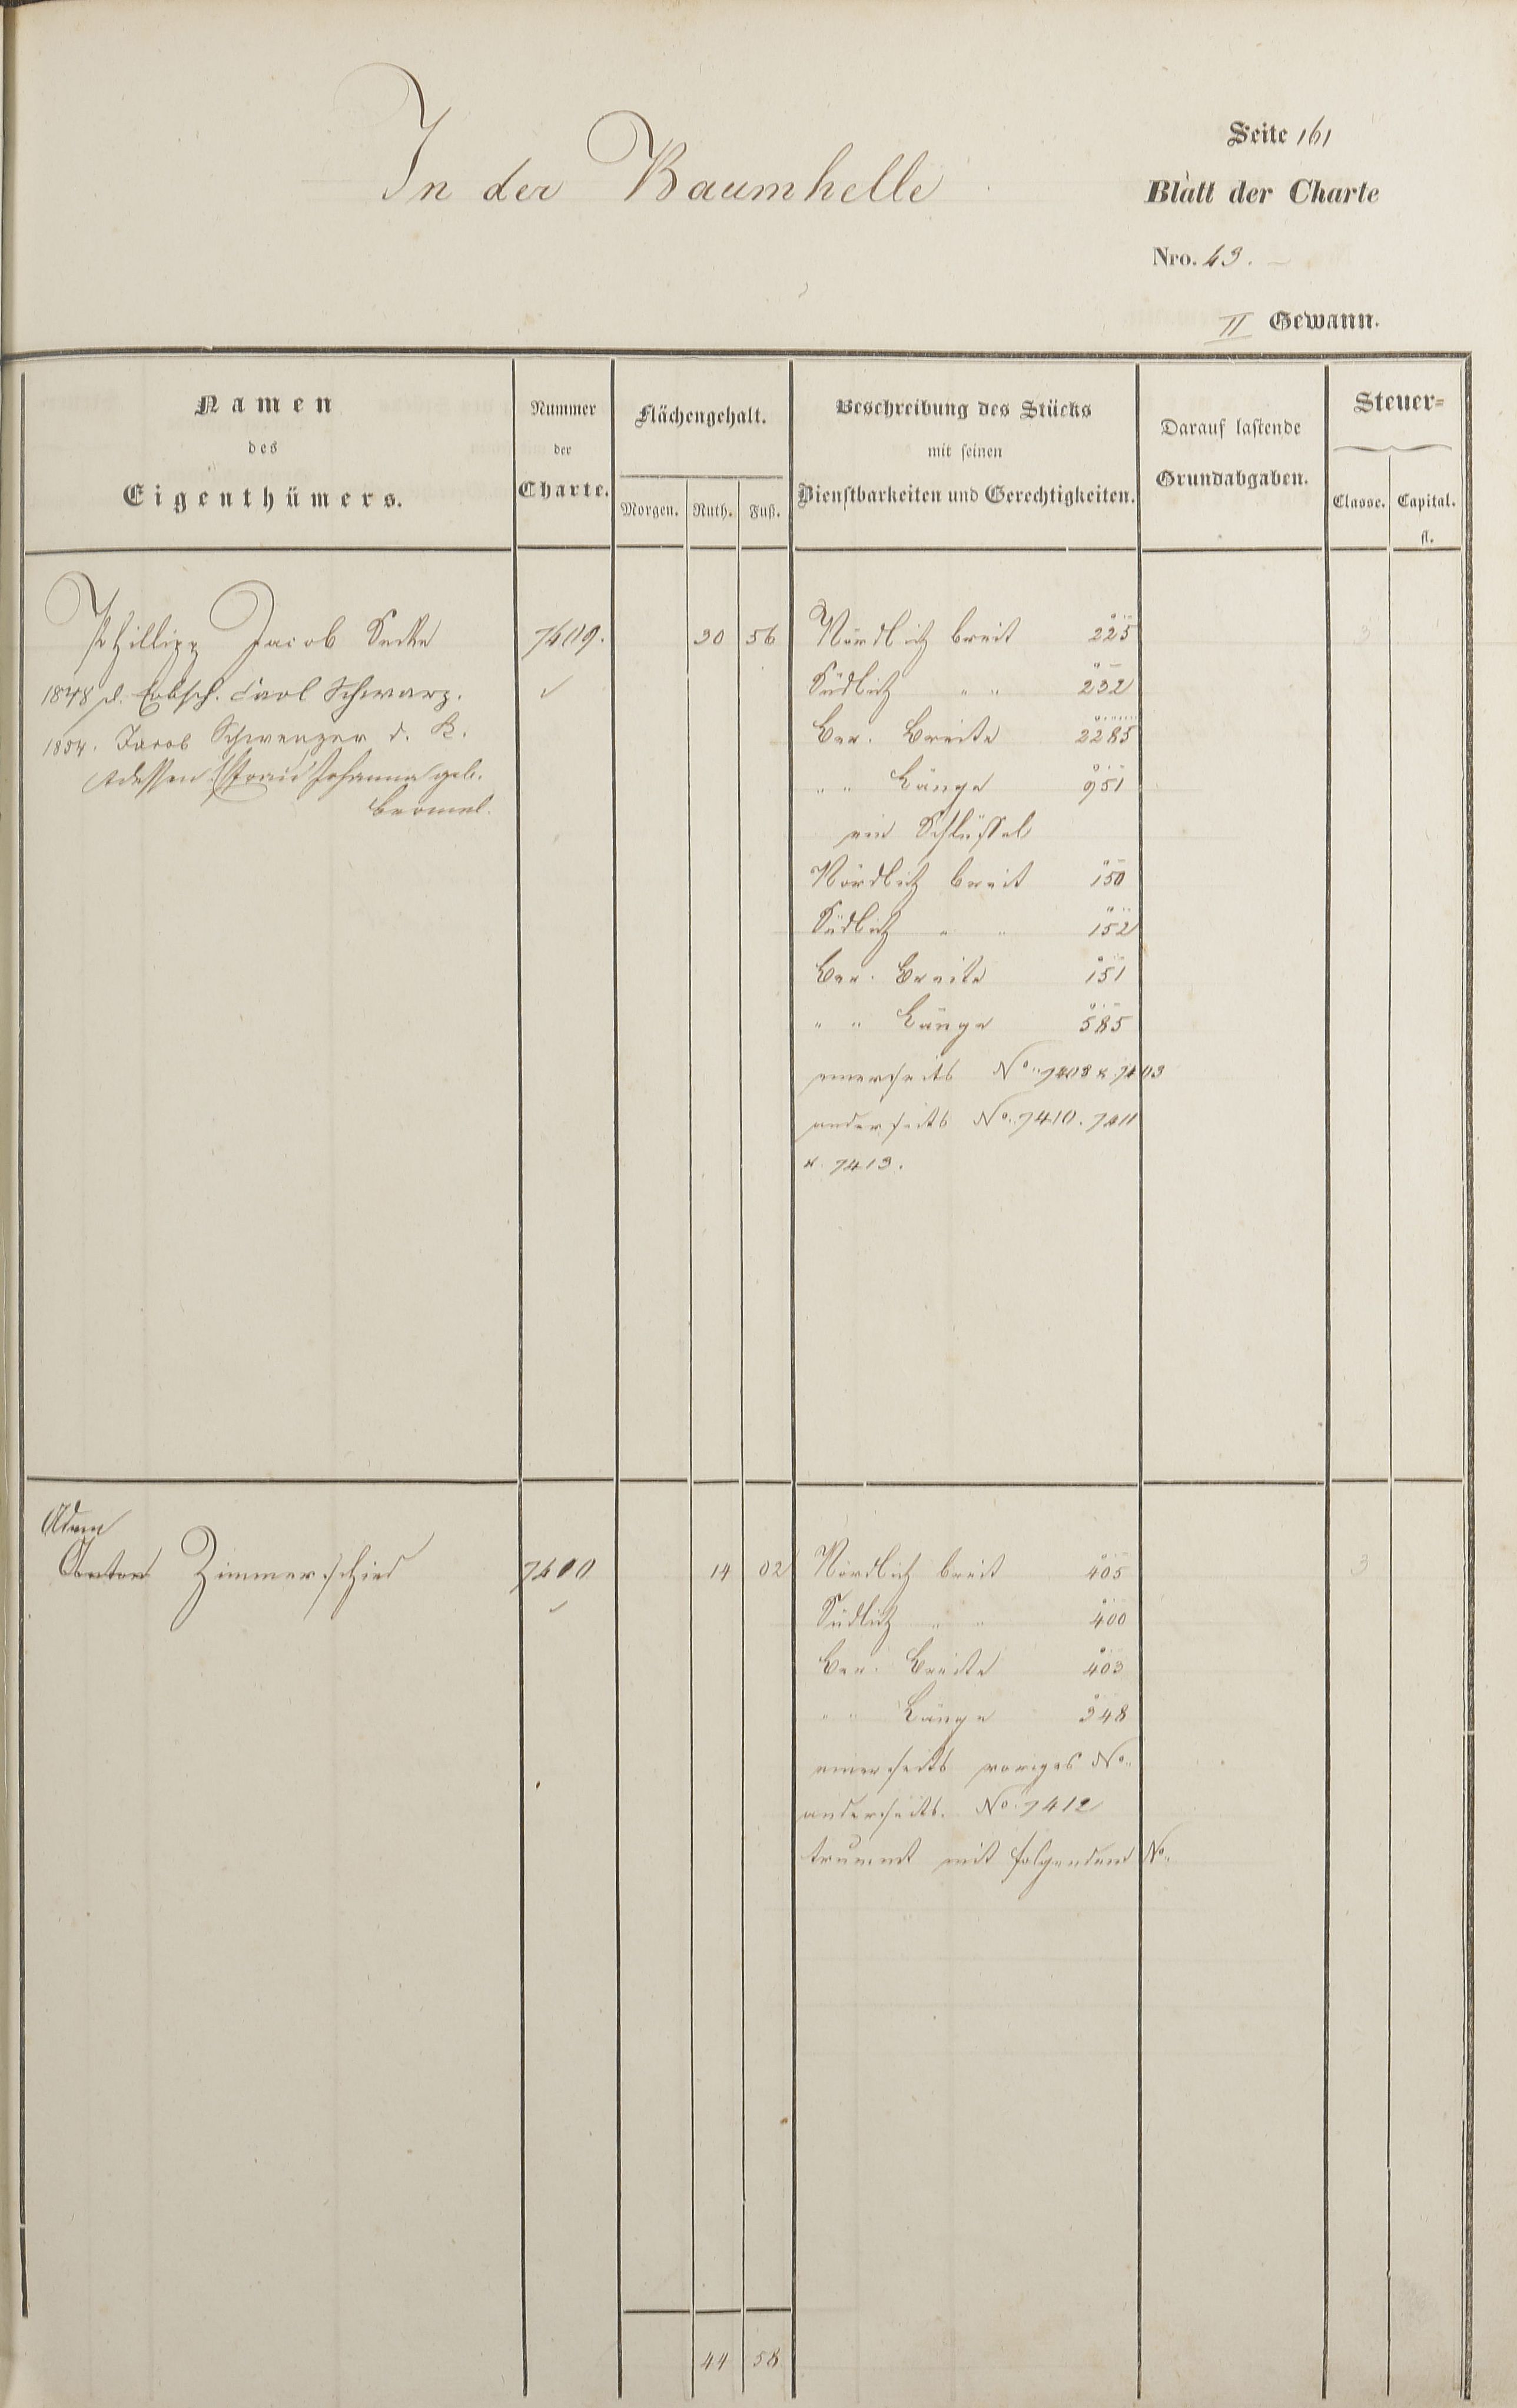 Seite 161
In der Baumhelle
Blatt der Charte
Nro. 43.
II Gewann.
Namen
des
Eigenthümers.
Nummer
der
Charte.
Flächengehalt.
Morgen. Ruth. Fuß.
Beschreibung des Stücks
mit seinen
Dienstbarkeiten und Gerechtigkeiten.
Darauf lastende
Grundabgaben.
Steuer=
Classe. Capital.
fl.
Phillipp Jacob 7409. 30 56 Nördlich breit 225 3
1848 d. Erbsch. Carl Schwarz. ✓ Südlich " " 232
1854. Jacob Schwenzer d. K. Ber. Breite 2285
dessen Frau Johanna geb. " " Länge 951
ein Schlüssel
Nördlich breit 150
Südlich " " 152
Ber. Breite 151
" " Länge 585
einerseits No. 7403
anderseits No. 7410. 7411
u. 7413.
Adam
Anton Zimmerschied 14 02 Nördlich breit 405 3
✓ Südlich " " 400
Ber. Breite 403
" " Länge 348
einerseits voriges No.
anderseits. No. 7412
trummt mit folgendem No.
44 58